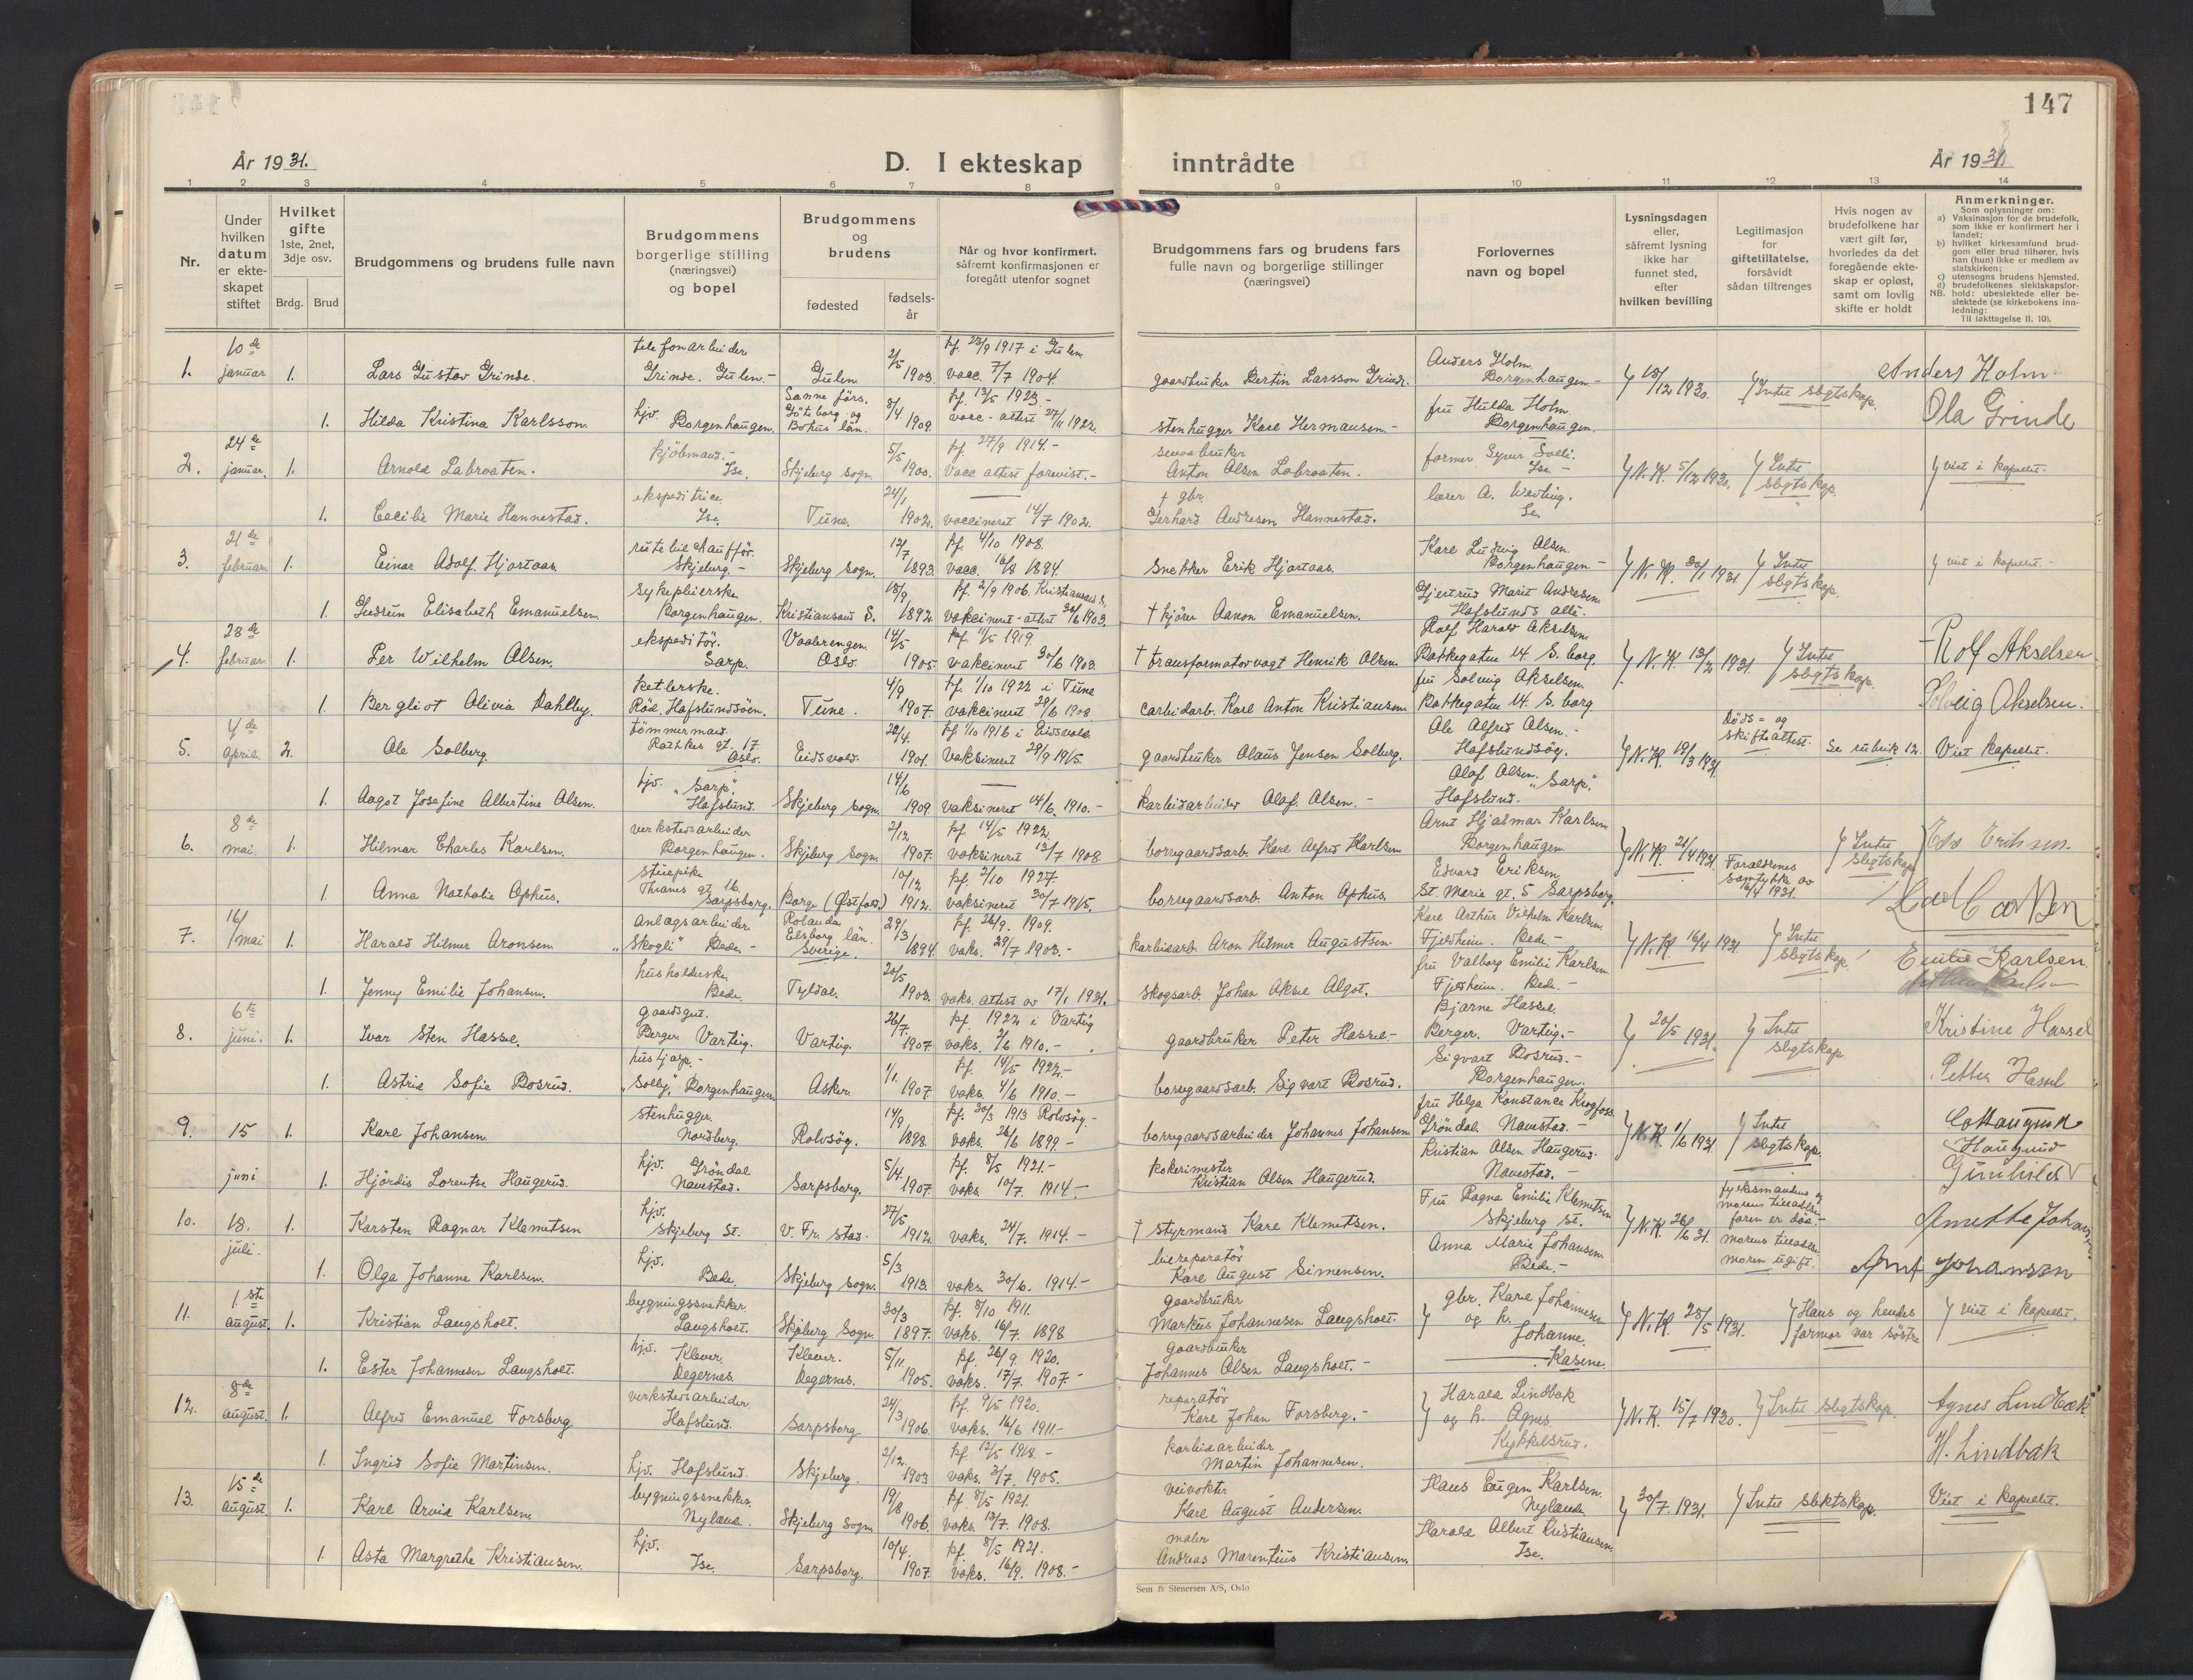 147
År 1931.
D. I ekteskap inntrådte
År 1931
1 2 3 4 5 6 7 8 9 10 11 12 13 14
Nr.
Under hvilken datum er ekteskapet stiftet
Hvilket gifte 1ste, 2net, 3dje osv.
Brdg. Brud
Brudgommens og brudens fulle navn
Brudgommens borgerlige stilling (næringsvei) og bopel
Brudgommens og brudens
fødested
fødsels-år
Når og hvor konfirmert, såfremt konfirmasjonen er foregått utenfor sognet
Brudgommens fars og brudens fars fulle navn og borgerlige stillinger (næringsvei)
Forlovernes navn og bopel
Lysningsdagen eller, såfremt lysning ikke har funnet sted, efter hvilken bevilling
Legitimasjon for giftetillatelse, forsåvidt sådan tiltrenges
Hvis nogen av brudefolkene har vært gift før, hvorledes da det foregående ekteskap er opløst, samt om lovlig skifte er holdt
Anmerkninger.
Som oplysninger om:
a) Vaksinasjon for de brudefolk, som ikke er konfirmert her i landet;
b) hvilket kirkesamfund brudgom eller brud tilhører, hvis han (hun) ikke er medlem av statskirken;
c) utensogns brudens hjemsted.
d) brudefolkenes slektskapsforhold: ubeslektede eller beslektede (se kirkebokens innledning:
NB.
Til iakttagelse II. 10).
1. 10de januar 1. Lars Gustav Grinde. telefonarbeider Grinde. Gulen.- Gulen 2/5 1903. kf. 23/9 1917 i Gulen vacc. 7/7 1904. gaardbruker Bertin Larsson Grinde. Anders Holm. Borgenhaugen- 18/12 1930. Intet slegtskap. Anders Holm.
1. Hilda Kristina Karlsson. hjv. Borgenhaugen. Sanne förs. Göteborg og Bohus län. 8/4 1909. kf. 13/5 1923.- vacc-attest 27/11 1922. stenhugger Karl Hermansen.- fru Hulda Holm. Borgenhaugen. Ola Grinde
2. 24de januar. 1. Arnold Labraaten. kjöbmand.- Ise. Skjeberg sogn. 5/5 1900. kf. 27/9 1914.- Vacc. attest forevist.- Anton Olsen Labraaten. Ise- N.K. 5/12 1930. Intet slegtskap. viet i kapellet.
1. Cecilie Marie Hannestad. ekspeditrice Ise. Tune. 24/1 1902. vaccineret 14/7 1902. † gbr. Gerhard Andresen Hannestad. lærer A. Wedling.
3. 21de februar 1. Einar Adolf Hjortaas. rutebilchauffør. Skjeberg.- Skjeberg sogn. 12/7 1893. kf. 4/10 1908. vacc. 16/8 1894. Snekker Erik Hjortaas. Karl Ludvig Olsen. Borgenhaugen- N.K. 30/1 1931. Intet slegtskap. viet i kapellet.-
1. Gudrun Elisabeth Emanuelsen. sykepleierske Borgenhaugen. Kristiansand S. 18/9 1892. kf. 2/9 1906. Kristiansand S. vakcineret-attest 30/6 1903. † kjører Aanon Emanuelsen. Gjertrud Marie Andresen Hafslunds allé.
4. 28de februar 1. Per Wilhelm Olsen. ekspeditör. Sarp. Vaalerengen Oslo. 14/5 1905. kf. 11/5 1919. vakcineret 30/6 1909. † transformatorvagt Henrik Olsen. Rolf Harald Akselsen Bakkegaten 14 S.borg N.K. 13/2 1931. Intet slegtskap. Rolf Akselsen
1. Bergliot Olivia Dahlby. Röd. Hafslundsöen. Tune. 4/9 1907. kf. 1/10 1922 i Tune vakcineret 29/6 1908 carbidarb. Karl Anton Kristiansen fru Solveig Akselsen Bakkegaten 14. S.borg Solveig Akselsen.
5. 4de april. 2. Ole Solberg. tömmermand. Rathkes gt. 17. Oslo. Eidsvold. 22/4. 1901. kf 1/10 1916 i Eidsvold Vaksineret 29/9 1915. gaardbruker Olaus Jensen Solberg. Ole Alfred Olsen.- Hafslundsöy. N.K. 19/3 1931. Döds- og skifteattest. Se rubrik 12. Viet kapellet.
1. Aagot Josefine Albertine Olsen. hjv. "Sarp". Hafslund. Skjeberg sogn. 14/6 1909 vaksineret 14/6. 1910.- karbidarbeider Olaf Olsen.- Olaf Olsen. "Sarp". Hafslund.
6. 8de mai. 1. Hilmar Charles Karlsen. verkstedsarbeider Borgenhaugen. Skjeberg sogn. 2/12 1907. kf 14/5 1922. vaksineret 13/7 1908. borregaardsarb. Karl Alfred Karlsen Arnt Hjalmar Karlsen Borgenhaugen N.K. 21/4 1931. Foreldrenes samtykke av 16/4 1931. Intet slegtskap
1. Anna Nathalie Ophus. stuepike Thranes gt. 16. Sarpsborg. Borge (Østfold.) 10/12 1912. kf. 2/10 1927. vaksineret 30/7 1915. borregaardsarb. Anton Ophus. Edvard Eriksen St. Marie gt. 5 Sarpsborg.
7. 16/mai 1. Harald Hilmer Aronsen anlægsarbeider "Skogli" Bede.- Rolanda Elsborg län. Sverige. 29/3 1894. kf. 26/9. 1909. vaks. 29/7 1903.- karbidarb. Aron Helmer Augustsen Karl Arthur Vilhelm Karlsen Fjeldheim. Bede.- N.K. 16/4 1931. Intet slegtskap Emilie Karlsen.
1. Jenny Emilie Johansen. husholderske Bede. Tyldal. 20/5 1903. vaks. attest av 17/1 1931. skogsarb. Johan Aksel Algot. fru Valborg Emilie Karlsen. Fjeldheim. Bede.-
8. 6te juni. 1. Ivar Sten Hassel. gaardsgut. Berger Varteig. Varteig. 26/7. 1907. kf. 1922 i Varteig vaks. 2/6 1910.- gaardbruker Peter Hassel- Bjarne Hassel. Berger. Varteig.- 20/5 1931. Intet slegtskap. Kristine Hassel
1. Astrid Sofie Bosrud. hushjelp.- "Solly". Borgenhaugen Asker. 1/1. 1907 kf. 14/5 1922.- vaks. 4/6 1910.- borregaardsarb. Sigvart Bosrud. Sigvart Bosrud.- Borgenhaugen. Petter Hassel
9. 15 juni 1. Karl Johansen. stenhugger. Nordberg. Rolvsöy. 14/9 1898. kf. 30/3 1913 Rolvsöy.- vaks. 26/6 1899.- borregaardsarbeider Johannes Johansen fru Helga Konstance Krogfoss. Gröndal. Navestad.- N.K. 1/6 1931. Intet slegtskap.
1. Hjördis Lorentse Haugerud. hjv. Gröndal Navestad. Sarpsborg. 5/4. 1907. kf. 8/5 1921.- vaks. 10/7. 1914.- kokerimester Kristian Olsen Haugerud. Kristian Olsen Haugerud. Navestad.-
10. 18. juli. 1. Karsten Ragnar Klemetsen hjv. Skjeberg St. V. Fr. stad. 27/5 1912. vaks. 24/7. 1914.- † styrmand Karl Klemetsen. Fru Ragna Emilie Klemetsen Skjeberg st. N.K. 26/6 31. fylkesmandens og morens tilladelse faren er död.-
1. Olga Johanne Karlsen. hjv. Bede. Skjeberg sogn. 5/3 1913. vaks. 30/6. 1914.- bilreparatör Karl August Simensen. Anna Marie Johansen. Bede.- morens tilladelse moren ugift. Johansen
11. 1ste august. 1. Kristian Langsholt. bygningssnekker. Langsholt. Skjeberg sogn. 30/3 1897. kf. 8/10 1911. vaks. 16/7. 1898 gaardbruker Markus Johannesen Langsholt. gbr. Karl Johannesen og h. Johanne. N.K. 28/5 1931. Hans og hendes farmor var söstre viet i kapellet.
1. Ester Johannesen Langsholt. hjv. Klever. Degernes. Klever. Degernes. 5/11. 1905. kf. 26/9. 1920. vaks. 17/7. 1907.- gaardbruker Johannes Olsen Langsholt.-
12. 8de august. 1. Alfred Emanuel Forsberg. verkstedsarbeider. Hafslund. Sarpsborg 24/3 1906. kf. 9/5 1920. vaks. 14/6 1911.- reparatör Karl Johan Forsberg.- Harald Lindbak og h. Agnes. Kykkelsrud. N.K. 15/7 1930. Intet slegtskap. Agnes Lindbak.
1. Ingrid Sofie Martinsen. hjv. Hafslund. Skjeberg. 2/12. 1903 kf. 12/5 1918.- vaks. 3/7. 1905. karbidarbeider Martin Johannesen. H. Lindbak
13. 15de august. 1. Karl Arvid Karlsen. bygningssnekker. Nyland. Skjeberg sogn 19/8 1906. kf. 8/5 1921. vaks. 13/7. 1908. veivokter Karl August Andersen. Hans Eugen Karlsen. Nyland. 30/7. 1931. Intet slektskap. Viet i kapellet.
1. Asta Margrethe Kristiansen. hjv. Ise. Sarpsborg. 10/4. 1907. kf. 8/5 1921. vaks. 16/9. 1908.- maler Andreas Marentius Kristiansen. Harald Albert Kristiansen Ise.
Sem & Stenersen A/S, Oslo